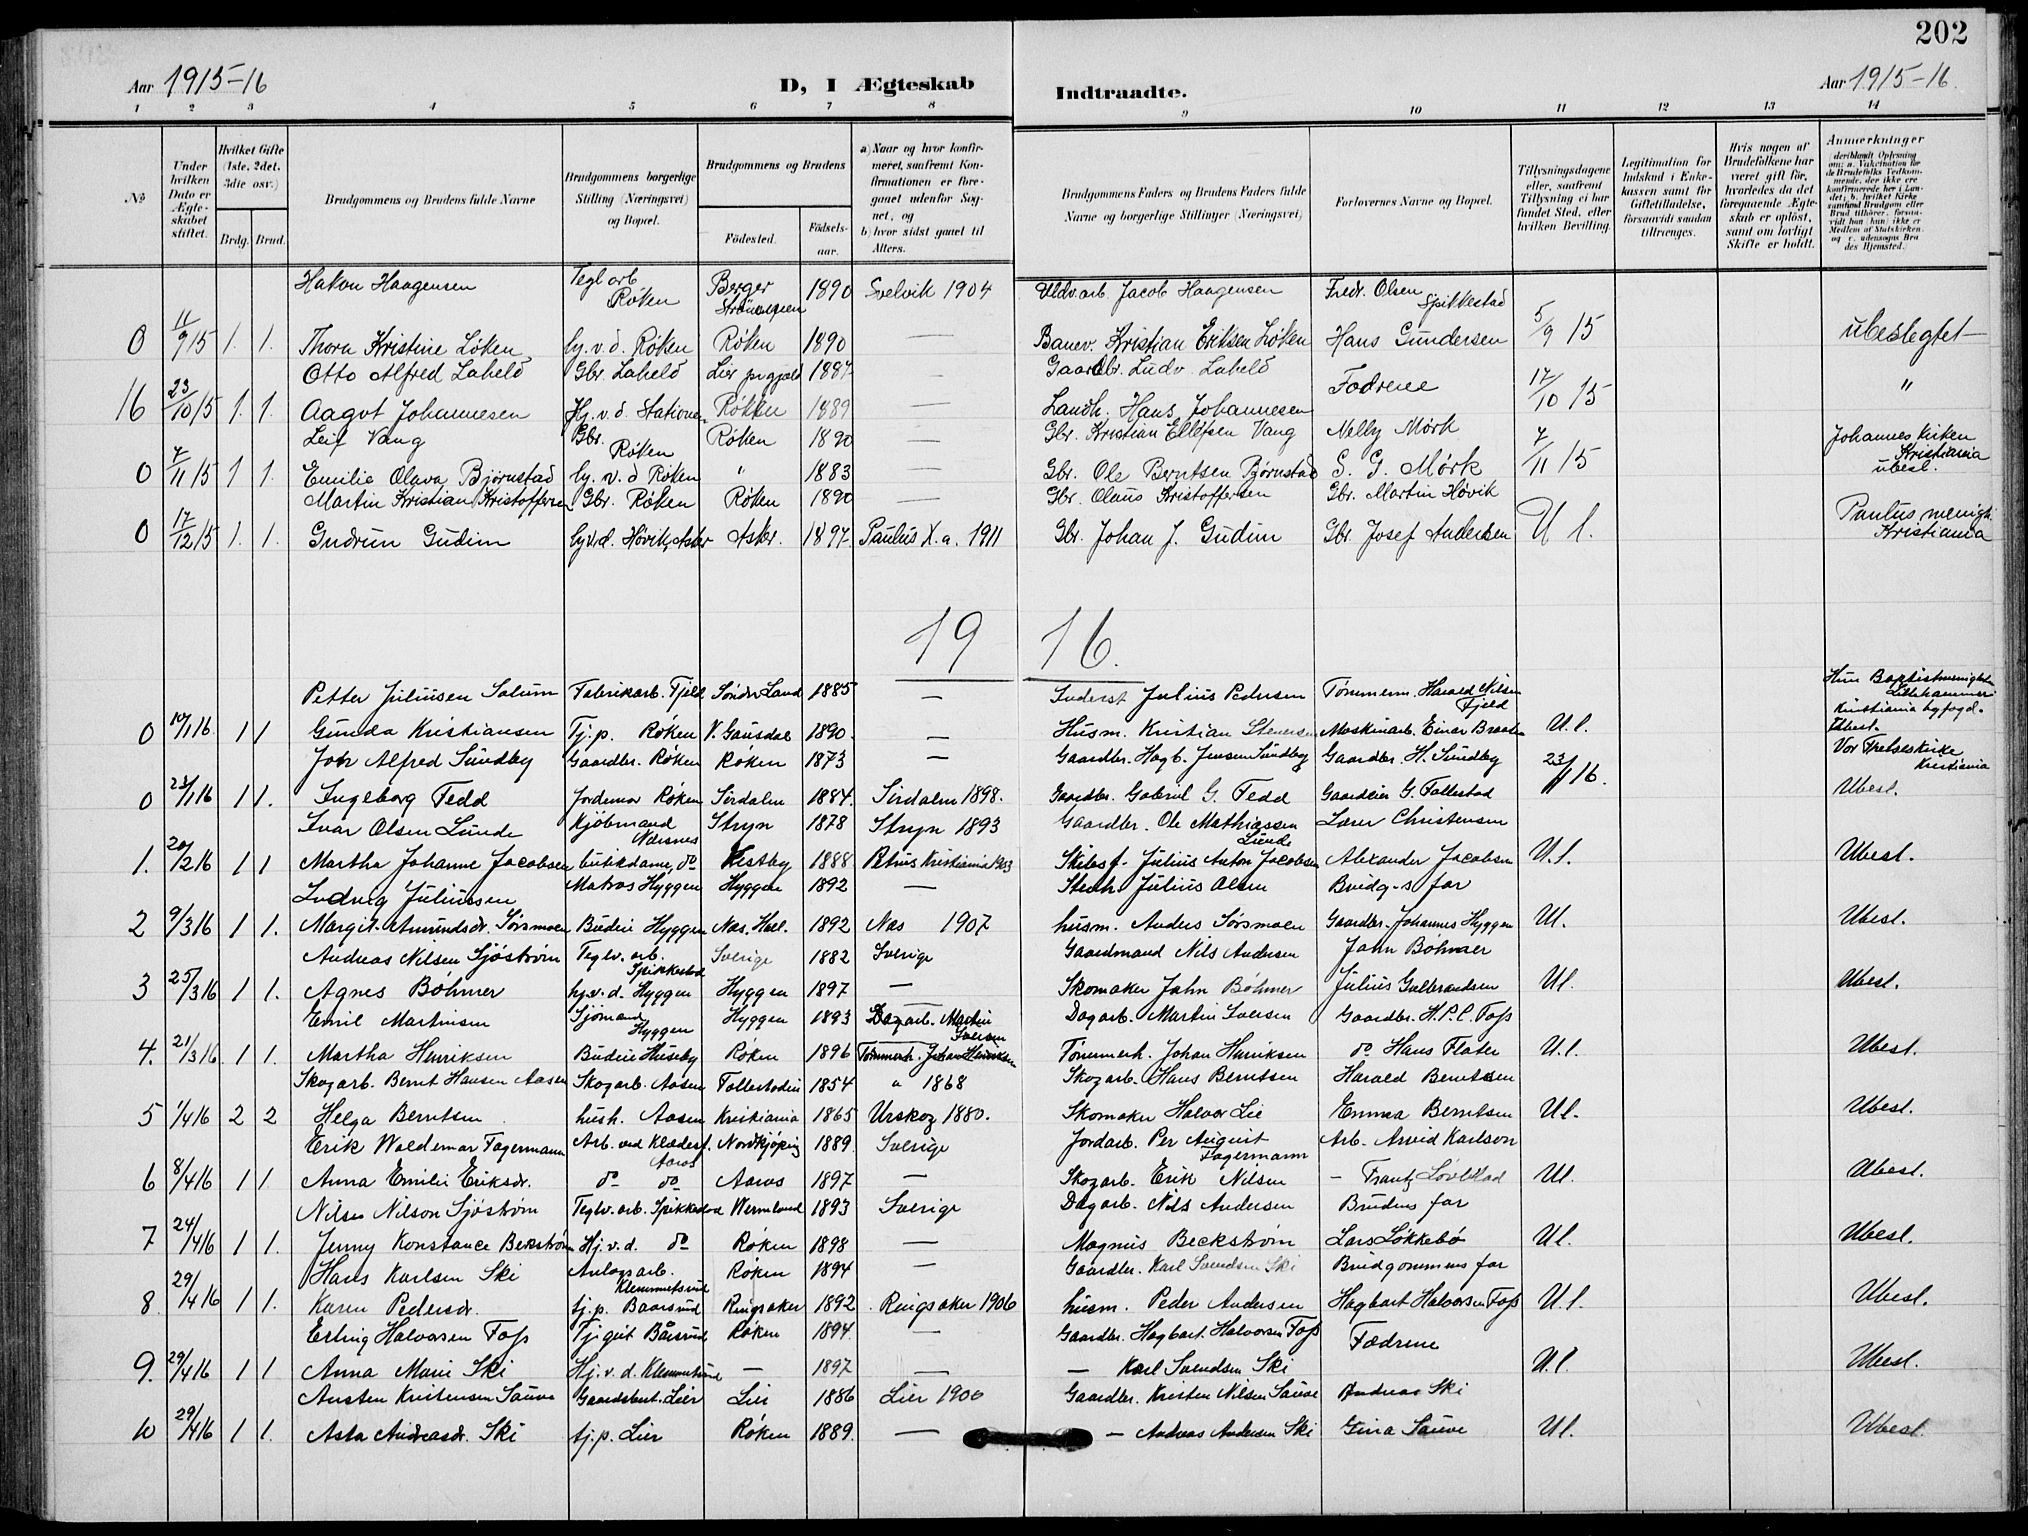 202
Aar 1915-16
D, I Ægteskab
Indtraadte.
Aar 1915-16
1 2 3 4 5 6 7 8 9 10 11 12 13 14
No
Under hvilken Dato er Ægteskabet stiftet.
Hvilket Gifte (1ste, 2det, 3die osv.)
Brdg. Brud.
Brudgommens og Brudens fulde Navne
Brudgommens borgerlige Stilling (Næringsvei) og Bopæl.
Brudgommens og Brudens
Fødested. Fødselsaar.
a) Naar og hvor konfirmeret, saafremt Konfirmationen er foregaaet udenfor Sognet, og b) hvor sidst gaaet til Alters.
Brudgommens Faders og Brudens Faders fulde Navne og borgerlige Stillinger (Næringsvei)
Forlovernes Navne og Bopæl.
Tillysningsdagene eller, saafremt Tillysning ei har fundet Sted, efter hvilken Bevilling.
Legitimation for Indskud i Enkekassen samt for Giftetilladelse, forsaavidt saadan tiltrænges.
Hvis nogen af Brudefolkene har været gift før, hvorledes da det foregaaende Ægteskab er opløst, samt om lovligt Skifte er holdt.
Anmerkninger
Hakon Haagensen Tegl arb Røken Berger Strømmen 1890 Svelvik 1904 Uldv.arb. Jacob Haagensen Fredr. Olsen Spikkestad
0 11/9 15 1. 1. Thora Kristine Løken hj. v. d. Røken Røken 1890 — Banev. Kristian Eriksen Løken Hans Gundersen 5/9 15 ubeslegtet
Otto Alfred Lahelø Gbr. Lahelø Lier prgjeld 1887 — Gaardbr. Ludv. Lahelø
16 23/10 15 1. 1. Aagot Johannesen Hj. v. d. Stationen Røken 1889 — Landh. Hans Johannesen Fædrene 17/10 15 "
Leif Vang Gbr. Røken Røken 1890 — Gbr. Kristian Ellefsen Vang Nelly Mørk
0 7/11 15 1 1. Emilie Olava Bjørnstad hj. v. d Røken " 1883 Gbr. Ole Berntsen Bjørnstad S. G. Mørk 7/11 15 Johannes Kirken Kristiania ubesl.
Martin Kristian Kristoffersen Gbr. Røken Røken 1890 — Gbr. Olaus Kristoffersen Gbr. Martin Høvik
0 17/12 15 1. 1. Gudrun Gudim hj.v.d. Høvik, Asker Asker. 1897 Paulus K.a. 1911 Gbr. Johan J. Gudim Gbr. Josef Andersen U l. Paulus menigh. Kristiania
19 16.
Petter Juliusen Solum Fabrikarb. Fjeld Søndr Land 1885 — Inderst Julius Pedersen Tømmerm. Harald Nilsen Fjeld
0 10/1 16. 1 1 Gunda Kristiansen Tj. p. Røken V. Gausdal 1890. — Husm. Kristian Stenersen Maskinarb. Einar Braaten U.l. Hun Baptistmenigheten Lillehammer Kristiania byfogd. Ubesl.
Johr Alfred Sundby Gaardbr. Røken Røken 1873 — Gaardbr. Hagb. Jensen Sundby Gaardbr. H. Sundby
0 23/1 16 1 1. Ingeborg Fedd Jordemor Røken Sirdalen 1884. Sirdalen 1898. Gaardbr. Gabriel G. Fedd Gaardeier G. Follestad 23/1 16. Vor Frelsers Kirke Kristiania Ubesl.
Ivar Olsen Lunde Kjøbmand Nærsnes Stryn 1878 Stryn 1893 Gaardbr. Ole Mathiassen Lunde Lærer Christensen
1. 20/2 16 1 1 Martha Johanne Jacobsen butikdame, do Vestby 1888 Petrus Kristiania 1903 Skibsf. Julius Anton Jacobsen Alexander Jacobsen U.l. Ubesl.
Ludvig Juliussen Matros Hyggen Hyggen 1892 — Stenh. Julius Olsen Brudg-s far
2 9/3 16 1 1. Margit Amundsdr. Sørsmoen Budeie Hyggen Nes. Hall. 1892 Nes 1907 husm. Anders Sørsmoen Gaardbr. Johannes Hyggen Ul. Ubesl.
Andreas Nilsen Sjøstrøm Teglv. arb. Spikkestad Sverige 1882 Sverige Gaardmand Nils Andersen John Bøhmer
3 25/3 16 1 1. Agnes Bøhmer hj.v.d. Hyggen Hyggen 1897 — Skomaker John Bøhmer Julius Gulbrandsen Ul. Ubesl.
Emil Martinsen Sjømand Hyggen Hyggen 1893 Dagarb. Martin Iversen Dagarb. Martin Iversen Gaardbr. H.P.C. Foss
4. 21/3 16. 1 1. Martha Henriksen Budeie Huseby Røken 1896 Tømmerh. Johan Henriksen Tømmerh. Johan Henriksen do Hans Flater U.l. Ubesl.
Skogarb. Bernt Hansen Aasen Skogarb. Aasen Follestadeie 1854 " 1868 Skogarb. Hans Berntsen Harald Berntsen
5 1/4 16 2 2 Helga Berntsen husb. Aasen Kristiania 1865 Urskog 1880. Skomaker Halvor Lie Emma Berntsen Ul. Ubesl.
Erik Waldemar Fagermann Arb. ved Klædesf. Aaros Nordkjøping 1889. Sverige Jordarb. Per August Fagermann Arb. Arvid Karlson
6 8/4 16 1 1 Anna Emilie Eriksdr. do do Aaros 1897 — Skogarb. Erik Nilsen — Frantz Løvblad Ul. Ubesl.
Nilses Nilson Sjøstrøm Teglv. arb. Spikkestad Wermland 1893 Sverige Dagarb. Nils Andersen Brudens far
7 24/4 16 1 1. Jenny Konstance Beckstrøm Hj. v. d. do Røken 1898 — Magnus Beckstrøm Lars Løkkebø Ul. Ubesl.
Hans Karlsen Ski Anlegsarb. Klemmetsrud Røken 1894 — Gaardbr. Karl Svendsen Ski Brudgommens far
8. 29/4 16 1 1. Karen Pedersdr. tj.p. Baarsrud Ringsaker 1892 Ringsaker 1906 husm. Peder Andersen Hagbart Halvorsen Foss U.l. Ubesl.
Erling Halvorsen Foss Tj.gut Bårsrud Røken 1894. — Gaardbr. Hagbart Halvorsen Foss Fædrene
9. 29/4 16 1 1 Anna Marie Ski Hj. v. d. Klemmetsrud — 1897 — — Karl Svendsen Ski U.l. Ubesl.
Austen Kristensen Sauve Gaardsbest. Lier Lier 1886 Lier 1900 Gaardbr. Kristen Nilsen Sauve Andreas Ski
10 29/4 16 1 1. Asta Andreasdr. Ski tj.p. Lier Røken 1889. — — Andreas Andersen Ski Gina Sauve Ul. Ubesl.